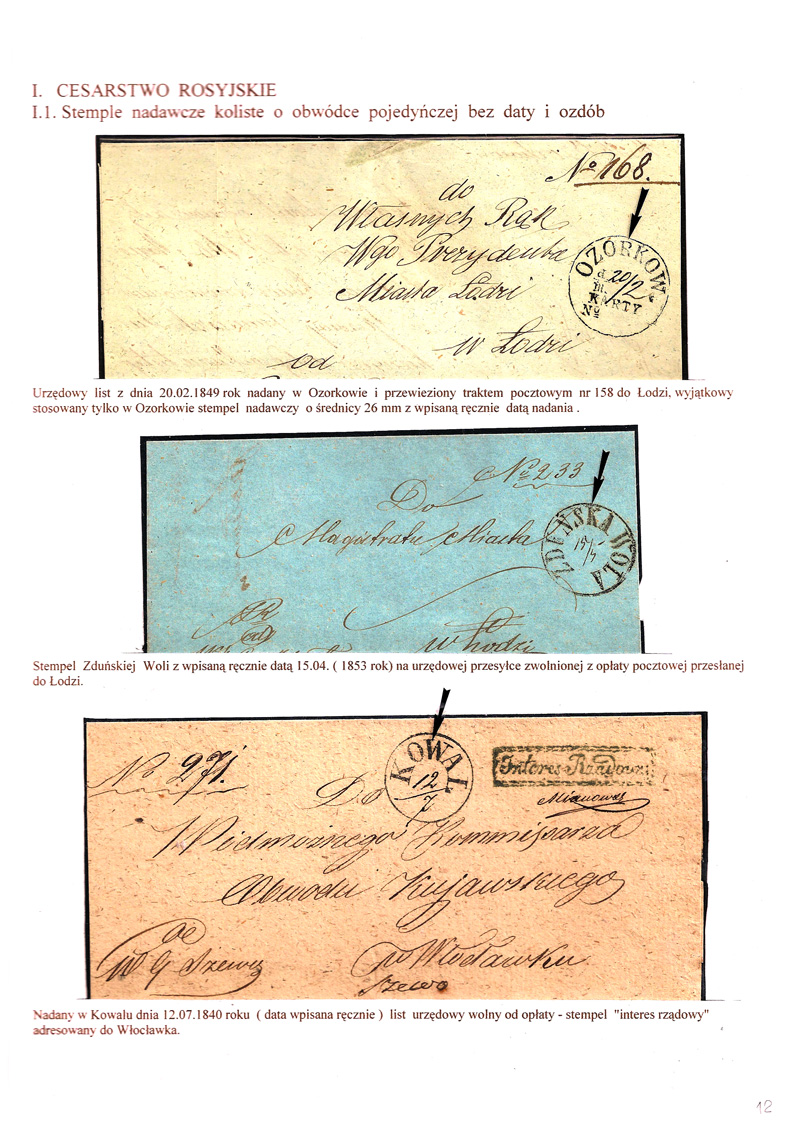 I. CESARSTWO ROSYJSKIE
I.1. Stemple nadawcze koliste o obwódce pojedyńczej bez daty i ozdób
No 168.
do
Własnych Rąk
Wgo Prezydenta
Miasta Łodzi
w Łodzi
od
OZORKOW.
d. 20/2
m.
KARTY
No
Urzędowy list z dnia 20.02.1849 rok nadany w Ozorkowie i przewieziony traktem pocztowym nr 158 do Łodzi, wyjątkowy
stosowany tylko w Ozorkowie stempel nadawczy o średnicy 26 mm z wpisaną ręcznie datą nadania .
No 233
Do
Magistratu Miasta
w Łodzi
ZDUŃSKA WOLA
15/4
Stempel Zduńskiej Woli z wpisaną ręcznie datą 15.04. ( 1853 rok) na urzędowej przesyłce zwolnionej z opłaty pocztowej przesłanej
do Łodzi.
No 271.
KOWAL
12/7
Interes Rządowy
Do
Wielmożnego Kommissarza
Obwodu Kujawskiego
w Włocławku
Nadany w Kowalu dnia 12.07.1840 roku ( data wpisana ręcznie ) list urzędowy wolny od opłaty - stempel "interes rządowy"
adresowany do Włocławka.
12